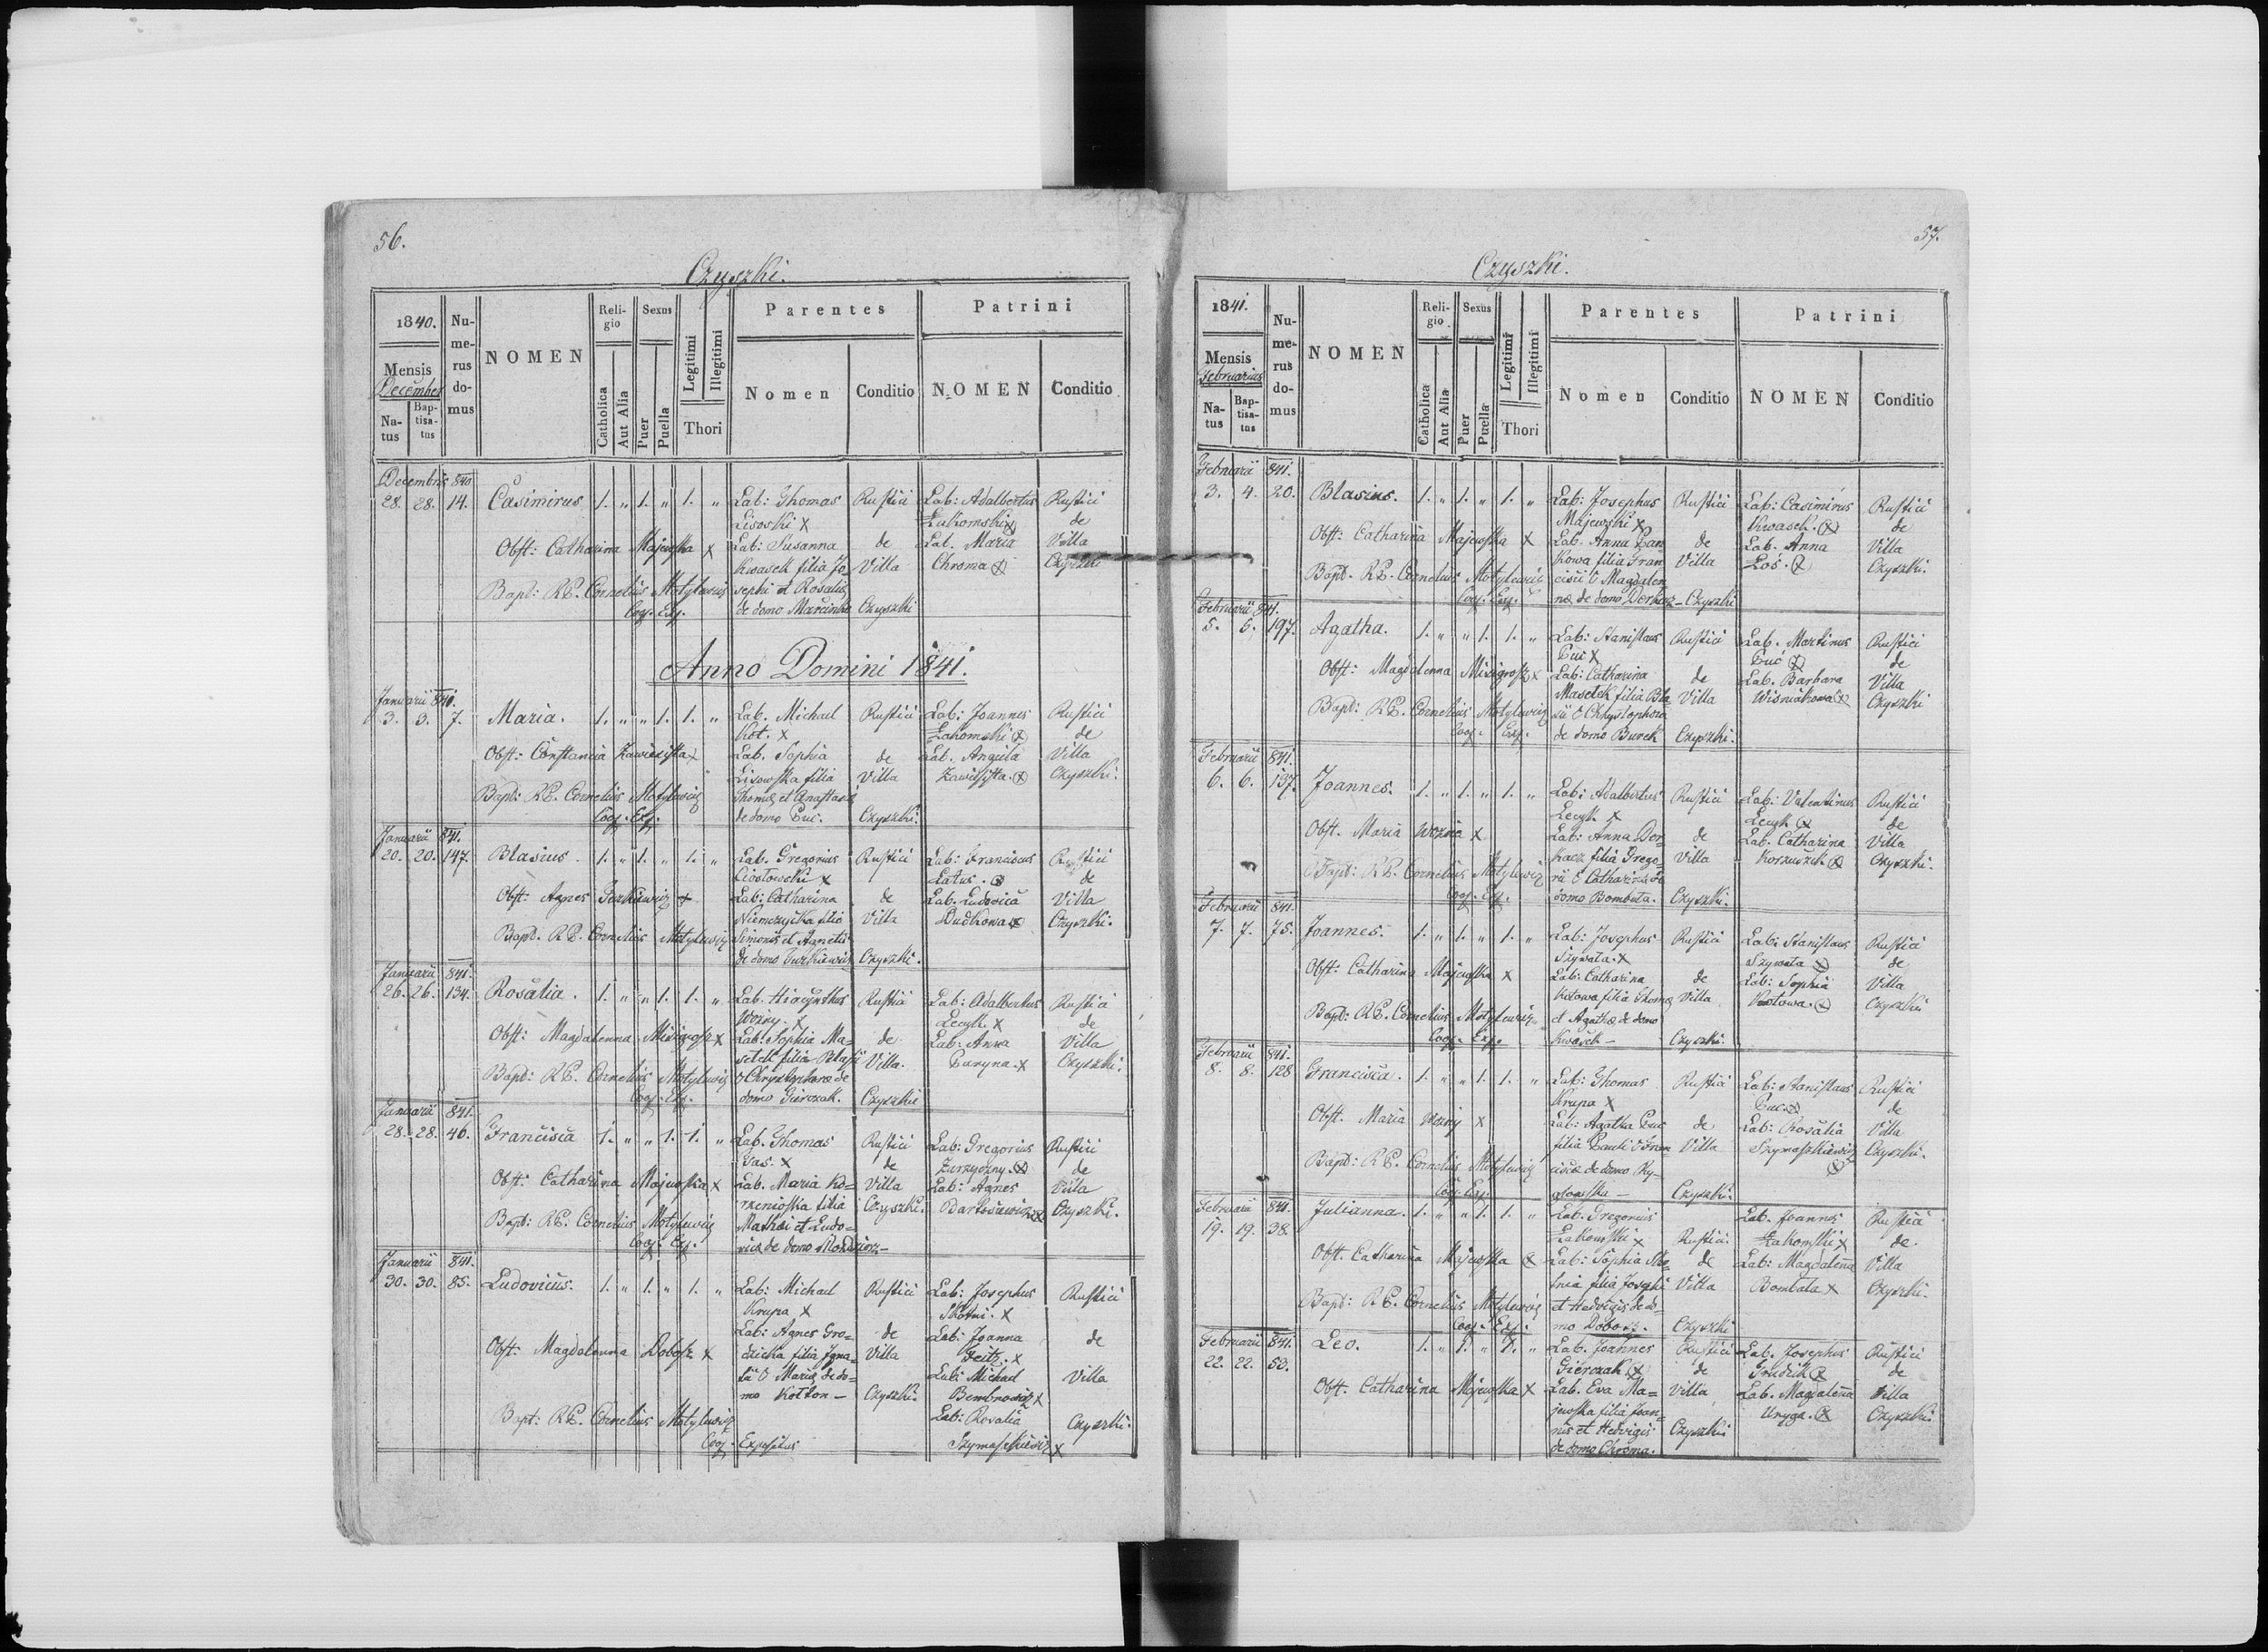 56.
Czyszki.
1840. Numerus domus NOMEN Religio Sexus Legitimi Illegitimi Parentes Patrini
Mensis December Natus Baptisatus Catholica Aut Alia Puer Puella Thori Nomen Conditio NOMEN Conditio
Decembris 840
28. 28. 14. Casimirus 1. " 1. " 1. " Lab: Thomas Rustici Lab: Adalbertus Rustici
Lisoski x Łukomski x de
Obst: Catharina Majewska x Lab: Susanna de Lab. Maria Villa
Kwasek filia Jo- Villa Chroma x Czyszki
Bapt: R.P. Cornelius Motylewicz sephi et Rosaliæ
Coop. Exp. de domo Marcinko Czyszki
Anno Domini 1841.
Januarii 841.
3. 3. 7. Maria. 1. " " 1. 1. " Lab. Michael Rustici Lab: Joannes Rustici
Kot. x Zakomski x de
Obst: Constancia x Lab. Sophia de Lab. Villa
Lisowska filia Villa Czyszki.
Bapt: R.P. Cornelius Motylewicz Thomæ et Anastasiæ
Coop. Exp. de domo Puc. Czyszki.
Januarii 841.
20. 20. 147. Blasius. 1. " 1. " 1. " Lab. Gregorius Rustici Lab: Franciscus Rustici
x Latus. x de
Obst: Agnes x Lab: Catharina de Lab. Ludovica Villa
filia Villa Dudkowa x Czyszki.
Bapt. R.P. Cornelius Motylewicz Simonis et Agnetis
de domo Turkiewicz Czyszki.
Januarii 841.
26. 26. 134. Rosalia. 1. " " 1. 1. " Lab. Hiacynthus Rustici Lab: Adalbertus Rustici
Wozny. x Lecyk x de
Obst: Magdalenna x Lab: Sophia Ma- de Lab: Anna Villa
selek filia Blasii Villa. Puryna. x Czyszki.
Bapt: R.P. Cornelius Motylewicz
Coop. Exp. domo Gierczak. Czyszki
Januarii 841.
28. 28. 46. Francisca 1. " " 1. 1. " Lab. Thomas Rustici Lab: Gregorius Rustici
x de x de
Obst: Catharina Majewska x Lab. Maria Ko- Villa Lab: Agnes Villa
filia Czyszki. Czyszki.
Bapt: R.P. Cornelius Motylewicz Mathæi et Ludo-
Coop. Exp. vicæ de domo
Januarii 841.
30. 30. 85. Ludovicus. 1. " 1. " 1. " Lab: Michael Rustici Lab: Josephus Rustici
Krupa x x
Obst: Magdalenna Dobosz x Lab: Agnes Gro- de Lab: Joanna de
dzicka filia Igna- Villa x
tii & Mariæ de do- Lab: Michael Villa
mo Kołton - Czyszki. x
Bapt: R.P. Cornelius Motylewicz Lab: Rosalia Czyszki.
Coop. Expositus Szymaszkiewicz x
57.
Czyszki.
1841. Numerus domus NOMEN Religio Sexus Legitimi Illegitimi Parentes Patrini
Mensis Februarius Natus Baptisatus Catholica Aut Alia Puer Puella Thori Nomen Conditio NOMEN Conditio
Februarii 841.
3. 4. 20. Blasius. 1. " 1. " 1. " Lab: Josephus Rustici Lab: Casimirus Rustici
Majewski x Kwasek. x de
Obst: Catharina Majewska x Lab. Anna Pan- de Lab. Anna Villa
kowa filia Fran- Villa Łoś. x Czyszki.
Bapt. R.P. Cornelius Motylewicz cisci & Magdalen-
Coop. Exp. næ de domo Derkacz - Czyszki
Februarii 841.
5. 6. 197. Agatha. 1. " " 1. 1. " Lab: Stanislaus Rustici Lab. Martinus Rustici
Puc x Puc x de
Obst: Magdalenna x Lab: Catharina de Lab. Barbara Villa
Maselek filia Bla- Villa Wisniakowa x Czyszki
Bapt: R.P. Cornelius Motylewicz sii & Chrystophora
Coop. Exp. de domo Burek Czyszki.
Februarii 841.
6. 6. 137. Joannes. 1. " 1. " 1. " Lab: Adalbertus Rustici Lab: Valentinus Rustici
Lecyk x Lecyk x de
Obst. Maria Wozna x Lab: Anna Der- de Lab. Catharina Villa
kacz filia Grego- Villa x Czyszki.
Bapt: R.P. Cornelius Motylewicz rii & Catharinæ de
Coop. Exp. domo Bombała. Czyszki.
Februarii 841.
7. 7. 75. Joannes. 1. " 1. " 1. " Lab: Josephus Rustici Lab: Stanislaus Rustici
Szywała. x Szywała x de
Obst: Catharina Majewska x Lab: Catharina de Lab: Sophia Villa
Kotowa filia Thomæ Villa Kotowa. x Czyszki
Bapt: R.P. Cornelius Motylewicz et Agathæ de domo
Coop. Exp. Kwasek - Czyszki.
Februarii 841.
8. 8. 128 Francisca. 1. " " 1. 1. " Lab: Thomas Rustici Lab: Stanislaus Rustici
Krupa x Puc. x de
Obst. Maria Wozny x Lab: Agatha Puc de Lab: Rosalia Villa
filia Pauli & Fran- Villa Szymaszkiewicz Czyszki.
Bapt: R.P. Cornelius Motylewicz ciscæ de domo Ry- x
Coop. Exp. głowska - Czyszki.
Februarii 841.
19. 19. 38. Julianna. 1. " " 1. 1. " Lab. Gregorius Lab. Joannes Rustici
Zakomski x Rustici. Zakomski x de
Obst. Catharina Majewska x Lab: Sophia de Lab: Magdalena Villa
filia Josephi Villa Bombała x Czyszki.
Bapt: R.P. Cornelius Motylewicz et Hedvigis de do-
Coop. Exp. mo Dobosz. Czyszki
Februarii 841.
22. 22. 53. Leo. 1. " 1. " 1. " Lab. Joannes Rustici Lab. Josephus Rustici
Gierczak x de x de
Obst. Catharina Majewska x Lab. Eva Ma- Villa Lab. Magdalena Villa
jewska filia Joan- Uryga. x Czyszki.
nis et Hedvigis Czyszki
de domo Chroma.